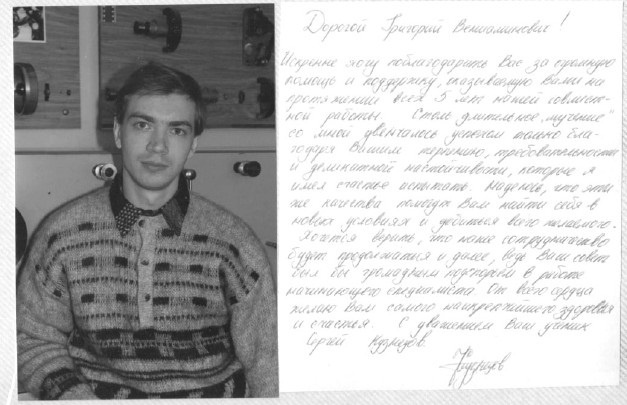 Дорогой Григорий Вениаминович!
Искренне хочу поблагодарить Вас за огромную
помощь и поддержку, оказываемую Вами на
протяжении всех 5 лет нашей совмест-
ной работы. Столь длительное "мучение"
со мной увенчалось успехом только бла-
годаря Вашим терпению, требовательности
и деликатной настойчивости, которые я
имел счастье испытать. Надеюсь, что эти
же качества помогут Вам найти себя в
новых условиях и добиться всего желаемого.
Хочется верить, что наше сотрудничество
будет продолжаться и далее, ведь Ваш совет
был бы громадным подспорьем в работе
начинающего специалиста. От всего сердца
желаю Вам самого наикрепчайшего здоровья
и счастья. С уважением Ваш ученик
Сергей Кузнецов.